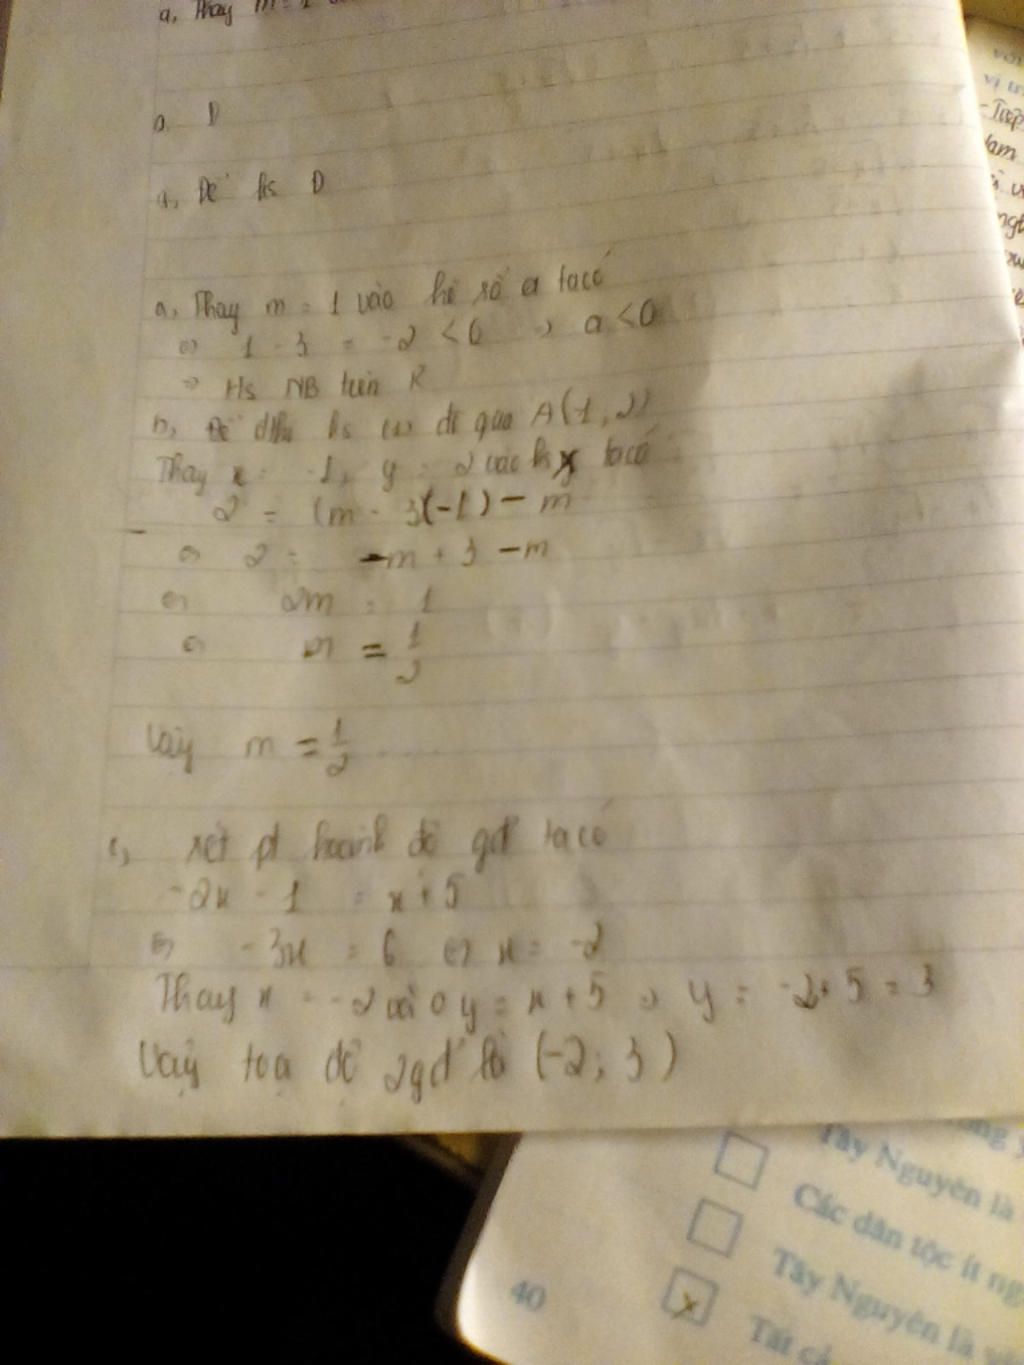 a, Thay m = 1
a. D
a, Để hs D
a, Thay m = 1 vào hệ số a ta có
⇔ 1 - 3 = -2 < 0 ⇒ a < 0
⇒ Hs NB trên R
b, Để đths hs (1) đi qua A(-1, 2)
Thay x = -1, y = 2 vào hs ta có
2 = (m - 3(-1) - m
⇔ 2 = -m + 3 - m
⇔ 2m = 1
⇔ m = 1/2
Vậy m = 1/2
c, xét pt hoành độ gđ ta có
-2x - 1 = x + 5
⇔ -3x = 6 ⇔ x = -2
Thay x = -2 vào y = x + 5 ⇒ y = -2 + 5 = 3
Vậy toạ độ 2gđ là (-2; 3)
Tây Nguyên là
Các dân tộc ít ng
Tây Nguyên là
Tất cả
40